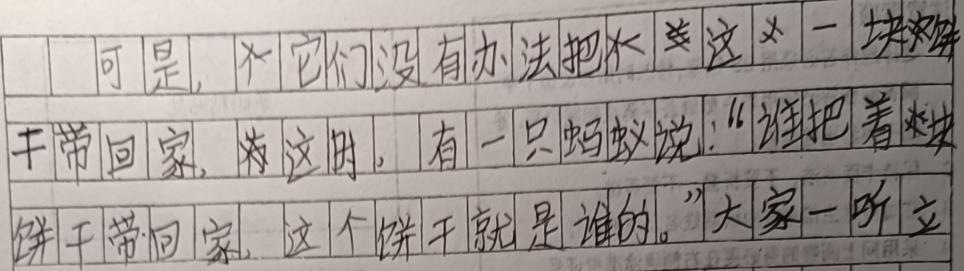 可是，它们没有办法把这一块饼
干带回家，这时，有一只蚂蚁说：“谁把着块
饼干带回家，这个饼干就是谁的。”大家一听立